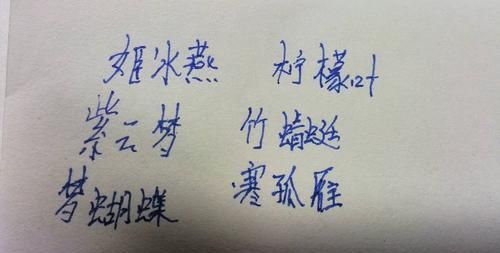 姬冰燕 柠檬叶
紫云梦 竹蜻蜓
梦蝴蝶 寒孤雁